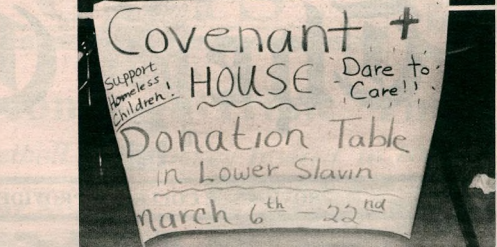 Covenant +
HOUSE
Support
Homeless
Children!
Dare to
Care!!
Donation Table
in Lower Slavin
March 6th - 22nd